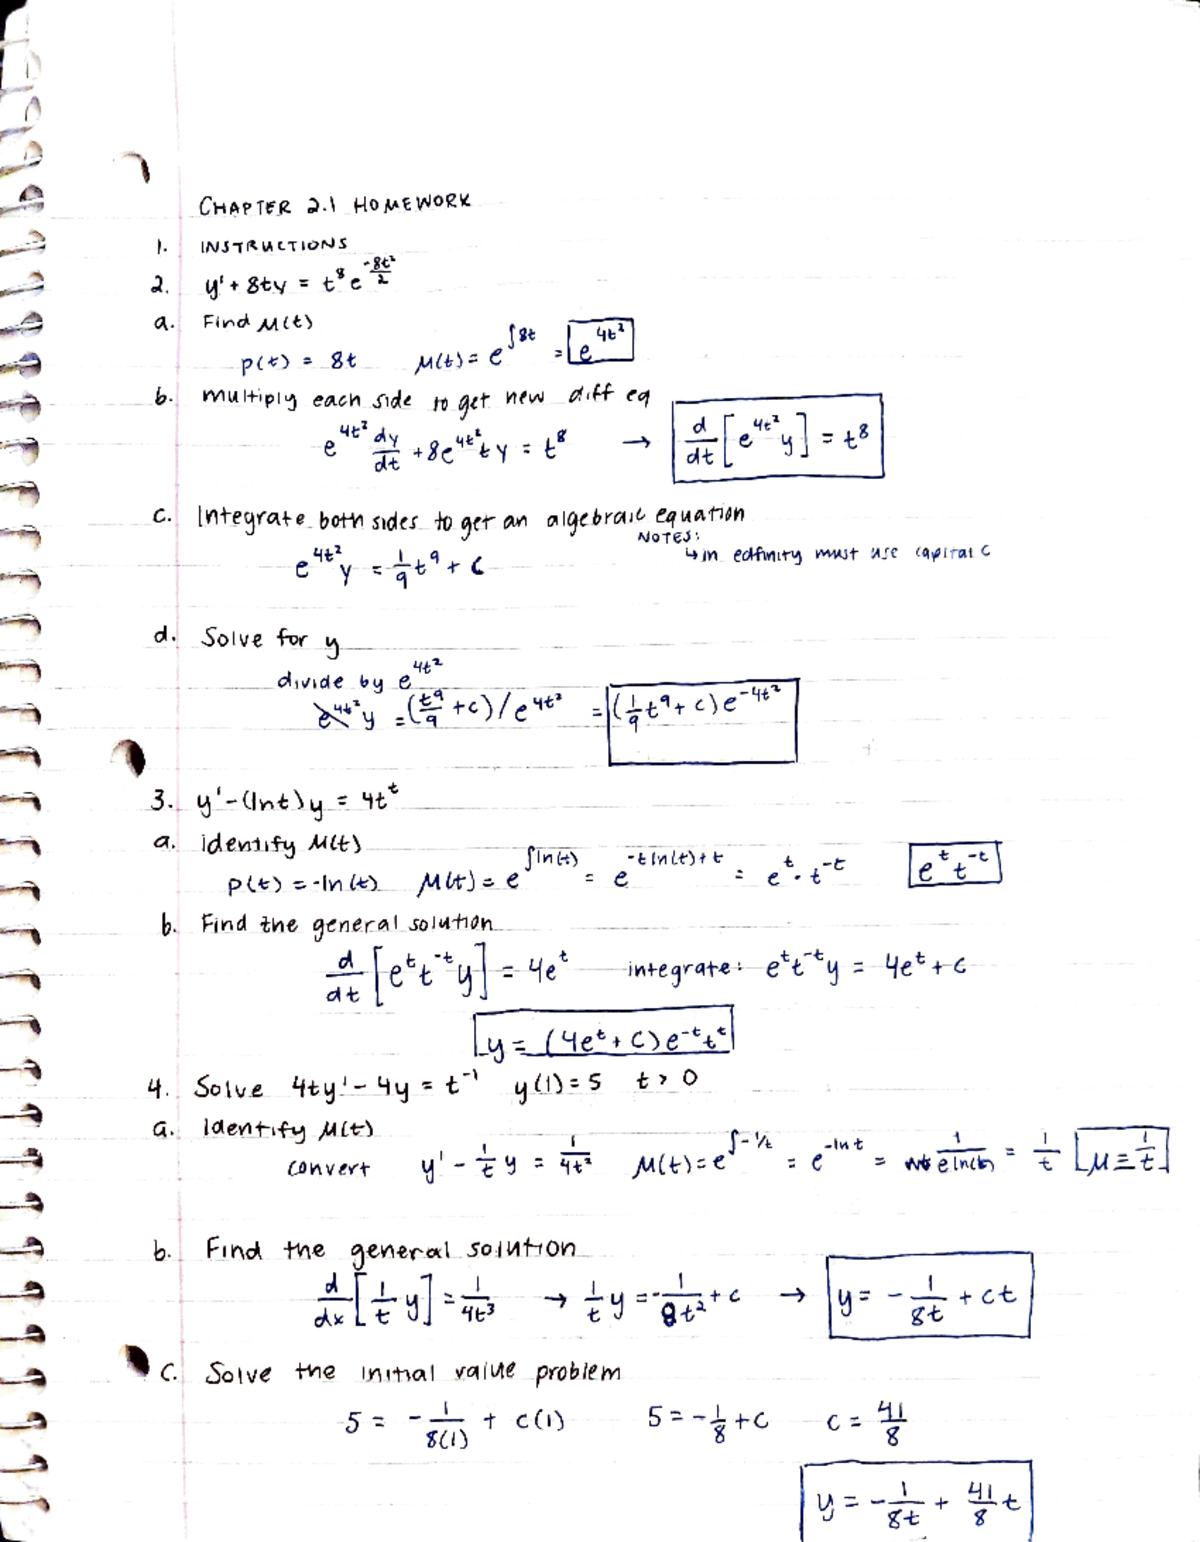 CHAPTER 2.1 HOMEWORK
1. INSTRUCTIONS
2. y' + 8ty = t⁸ e^(-8t²/2)
a. Find μ(t)
p(t) = 8t μ(t) = e^(∫8t) = e^(4t²)
b. multiply each side to get new diff eq
e^(4t²) dy/dt + 8e^(4t²) t y = t⁸ → d/dt [e^(4t²) y] = t⁸
c. Integrate both sides to get an algebraic equation
NOTES:
↳ in edfinity must use capital C
e^(4t²) y = 1/9 t⁹ + C
d. Solve for y
divide by e^(4t²)
e^(4t²) y = (t⁹/9 + c)/e^(4t²) = (1/9 t⁹ + c)e^(-4t²)
3. y' - (lnt)y = 4t^t
a. identify μ(t)
p(t) = -ln(t) μ(t) = e^(∫ln(t)) = e^(-tln(t)+t) = e^t · t^-t e^t t^-t
b. Find the general solution
d/dt [e^t t^-t y] = 4e^t integrate: e^t t^-t y = 4e^t + c
y = (4e^t + C)e^-t t^t
4. Solve 4ty' - 4y = t^-1 y(1) = 5 t > 0
a. Identify μ(t)
convert y' - 1/t y = 1/4t² μ(t) = e^(∫-1/t) = e^(-lnt) = 1/e^(ln(t)) = 1/t μ = 1/t
b. Find the general solution
d/dx [1/t y] = 1/4t³ → 1/t y = -1/8t² + c → y = -1/8t + ct
c. Solve the initial value problem
5 = -1/8(1) + c(1) 5 = -1/8 + c c = 41/8
y = -1/8t + 41/8 t